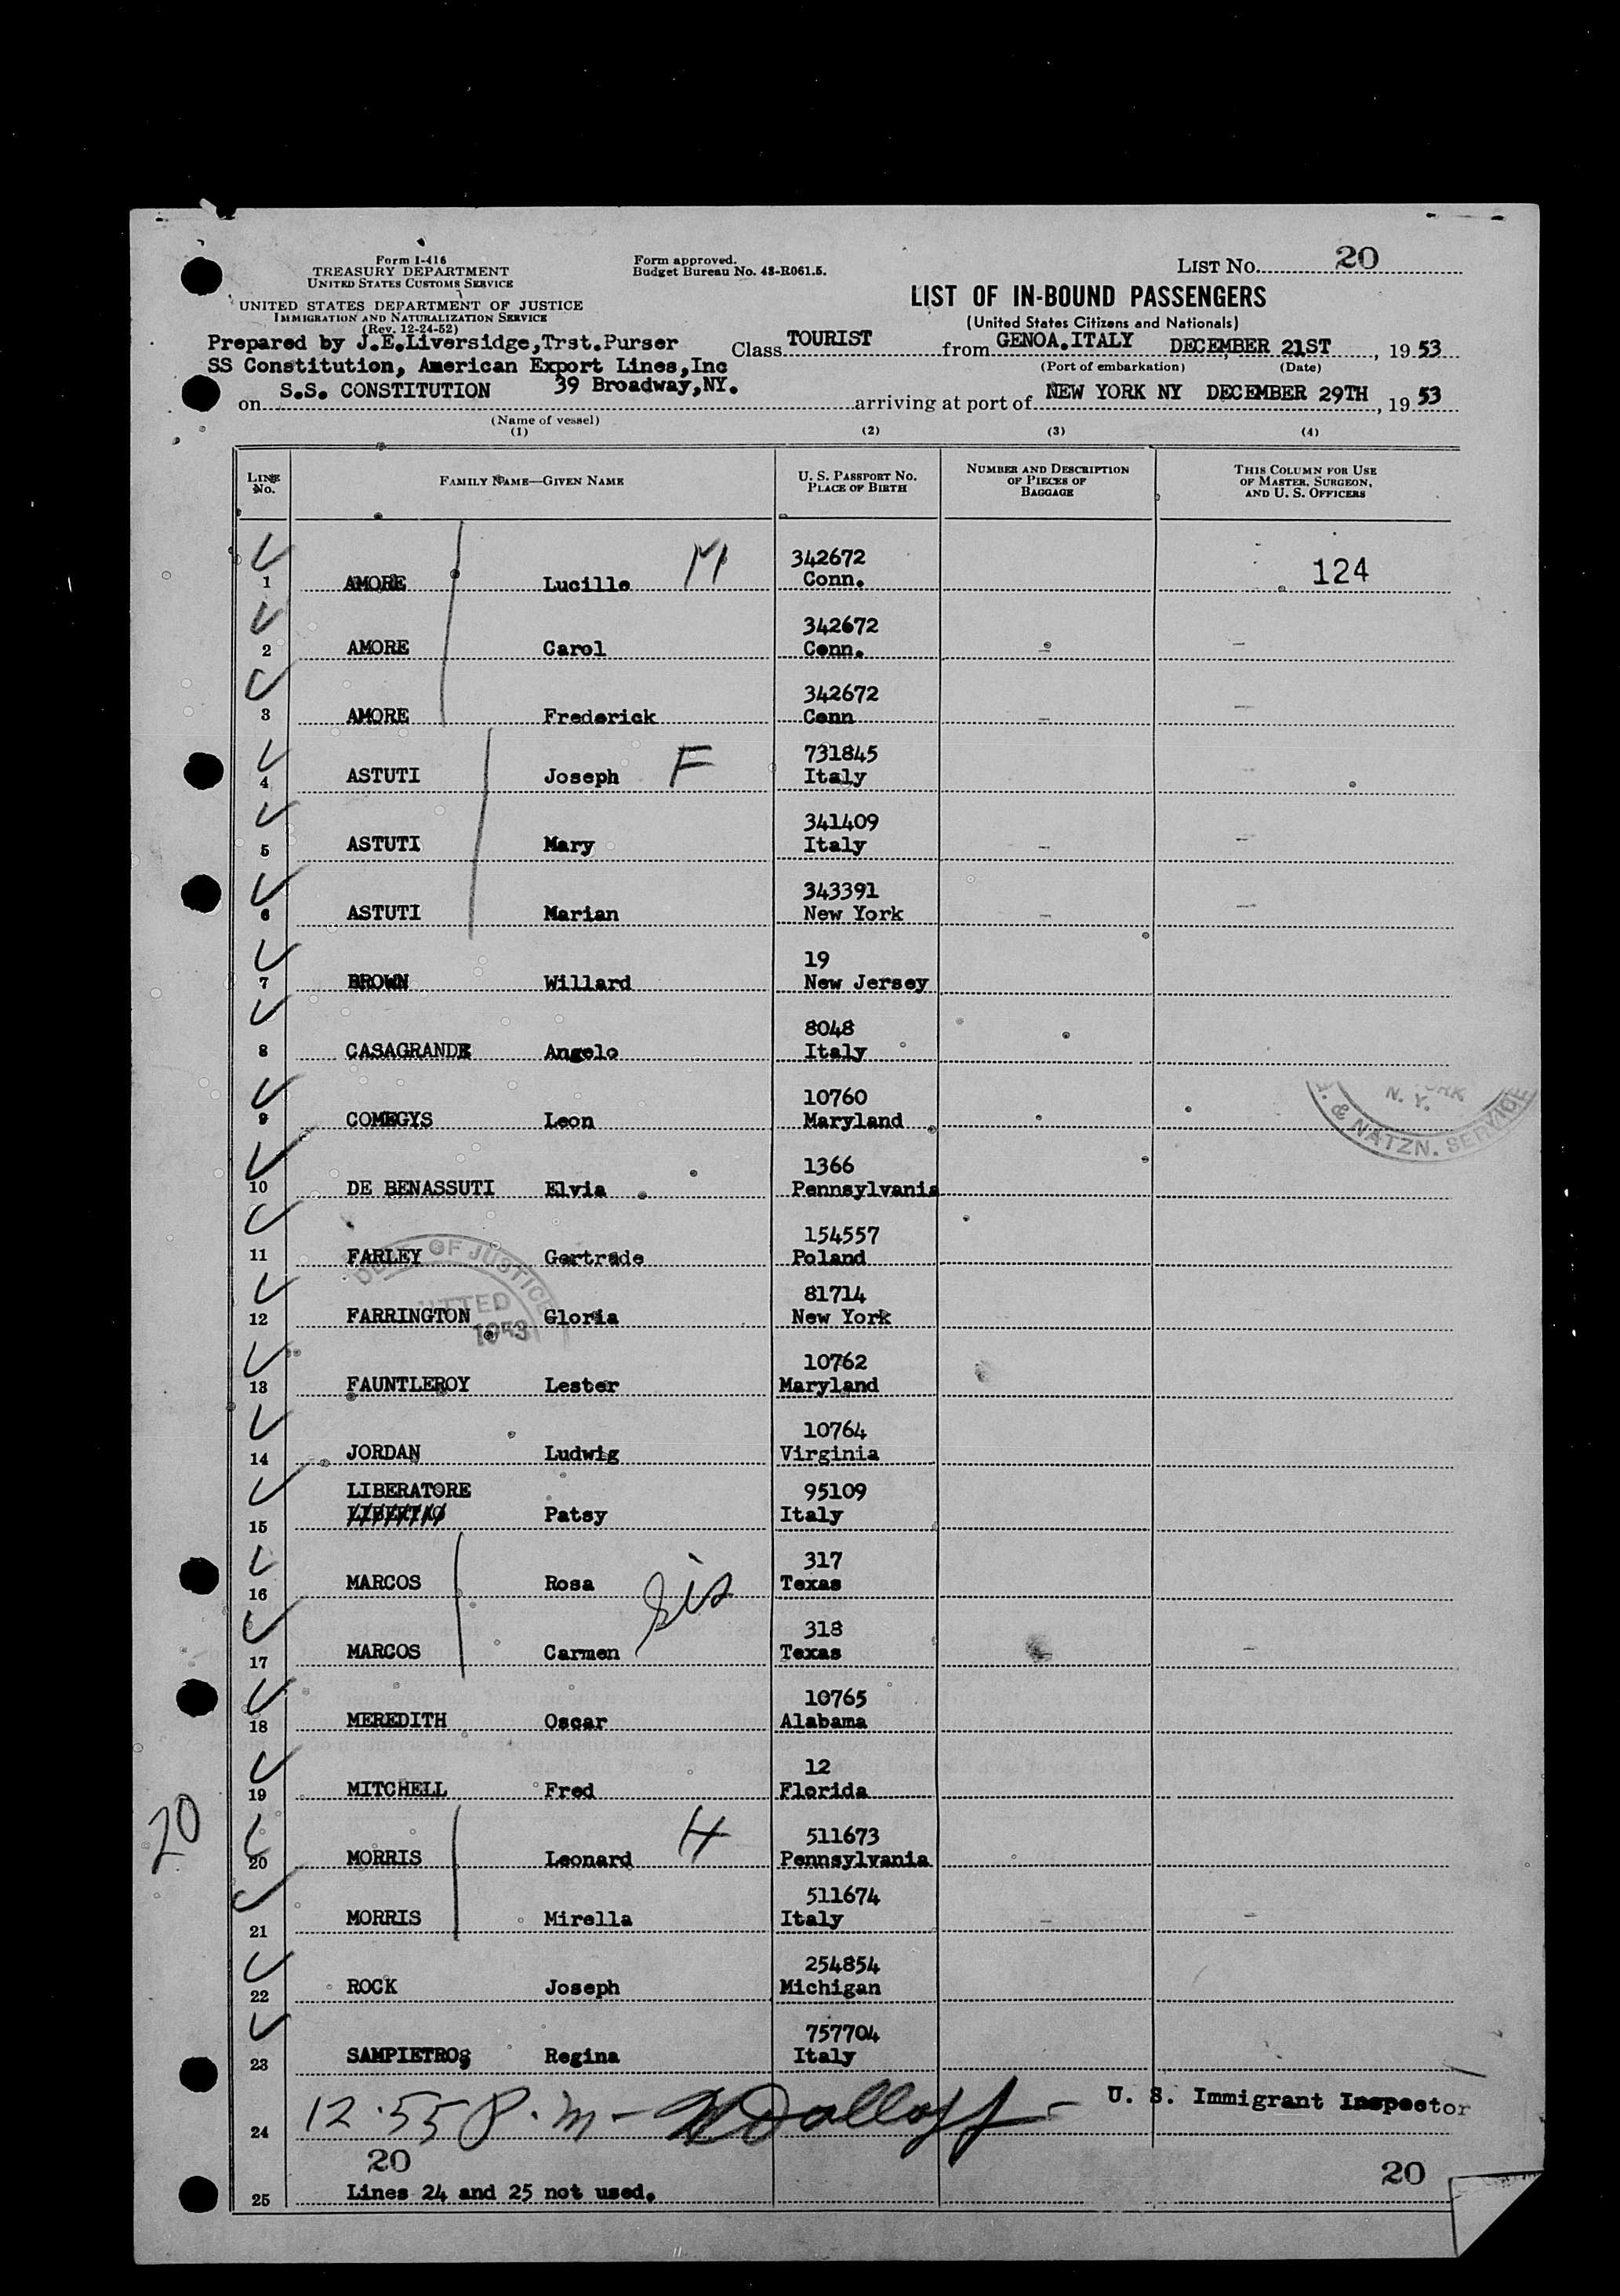 Form I-416
TREASURY DEPARTMENT
UNITED STATES CUSTOMS SERVICE
UNITED STATES DEPARTMENT OF JUSTICE
IMMIGRATION AND NATURALIZATION SERVICE
(Rev. 12-24-52)
Form approved.
Budget Bureau No. 43-R061.5.
LIST NO. 20
LIST OF IN-BOUND PASSENGERS
(United States Citizens and Nationals)
Prepared by J.E.Liversidge,Trst.Purser
SS Constitution, American Export Lines,Inc
39 Broadway,NY.
Class TOURIST from GENOA.ITALY DECEMBER 21ST, 1953
(Port of embarkation) (Date)
on S.S. CONSTITUTION arriving at port of NEW YORK NY DECEMBER 29TH, 1953
(Name of vessel)
(1) (2) (3) (4)
LINE NO. FAMILY NAME—GIVEN NAME U. S. PASSPORT NO. PLACE OF BIRTH NUMBER AND DESCRIPTION OF PIECES OF BAGGAGE THIS COLUMN FOR USE OF MASTER, SURGEON, AND U. S. OFFICERS
342672
1 AMORE Lucille M Conn. 124
342672
2 AMORE Carol Conn.
342672
3 AMORE Frederick Conn
731845
4 ASTUTI Joseph F Italy
341409
5 ASTUTI Mary Italy
343391
6 ASTUTI Marian New York
19
7 BROWN Willard New Jersey
8048
8 CASAGRANDE Angelo Italy
10760
9 COMEGYS Leon Maryland
N. Y.
& NATZN. SERVICE
1366
10 DE BENASSUTI Elvia Pennsylvania
154557
11 FARLEY Gertrude Poland
OF JUSTICE
1953
81714
12 FARRINGTON Gloria New York
10762
13 FAUNTLEROY Lester Maryland
10764
14 JORDAN Ludwig Virginia
LIBERATORE 95109
15 Patsy Italy
317
16 MARCOS Rosa sis Texas
318
17 MARCOS Carmen Texas
10765
18 MEREDITH Oscar Alabama
12
19 MITCHELL Fred Florida
20
511673
20 MORRIS Leonard H Pennsylvania
511674
21 MORRIS Mirella Italy
254854
22 ROCK Joseph Michigan
757704
23 SAMPIETRO Regina Italy
24 12.55 P.m- U. S. Immigrant Inspector
20 20
25 Lines 24 and 25 not used.